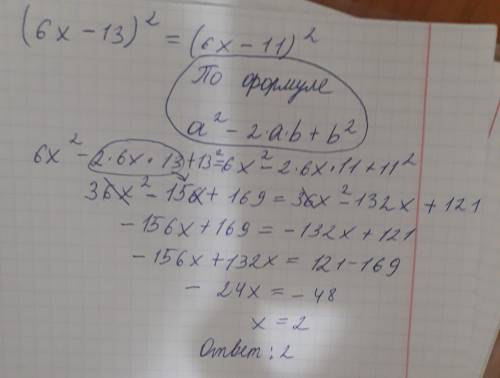 (6x - 13)² = (6x - 11)²
По формуле
a² - 2·a·b + b²
6x² - 2·6x·13 + 13² = 6x² - 2·6x·11 + 11²
36x² - 156x + 169 = 36x² - 132x + 121
- 156x + 169 = - 132x + 121
- 156x + 132x = 121 - 169
- 24x = - 48
x = 2
Ответ: 2